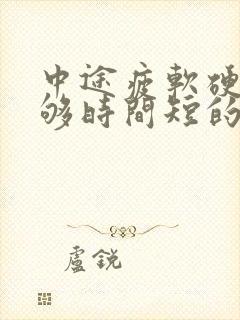 中途疲軟硬
够時間短的
盧銳